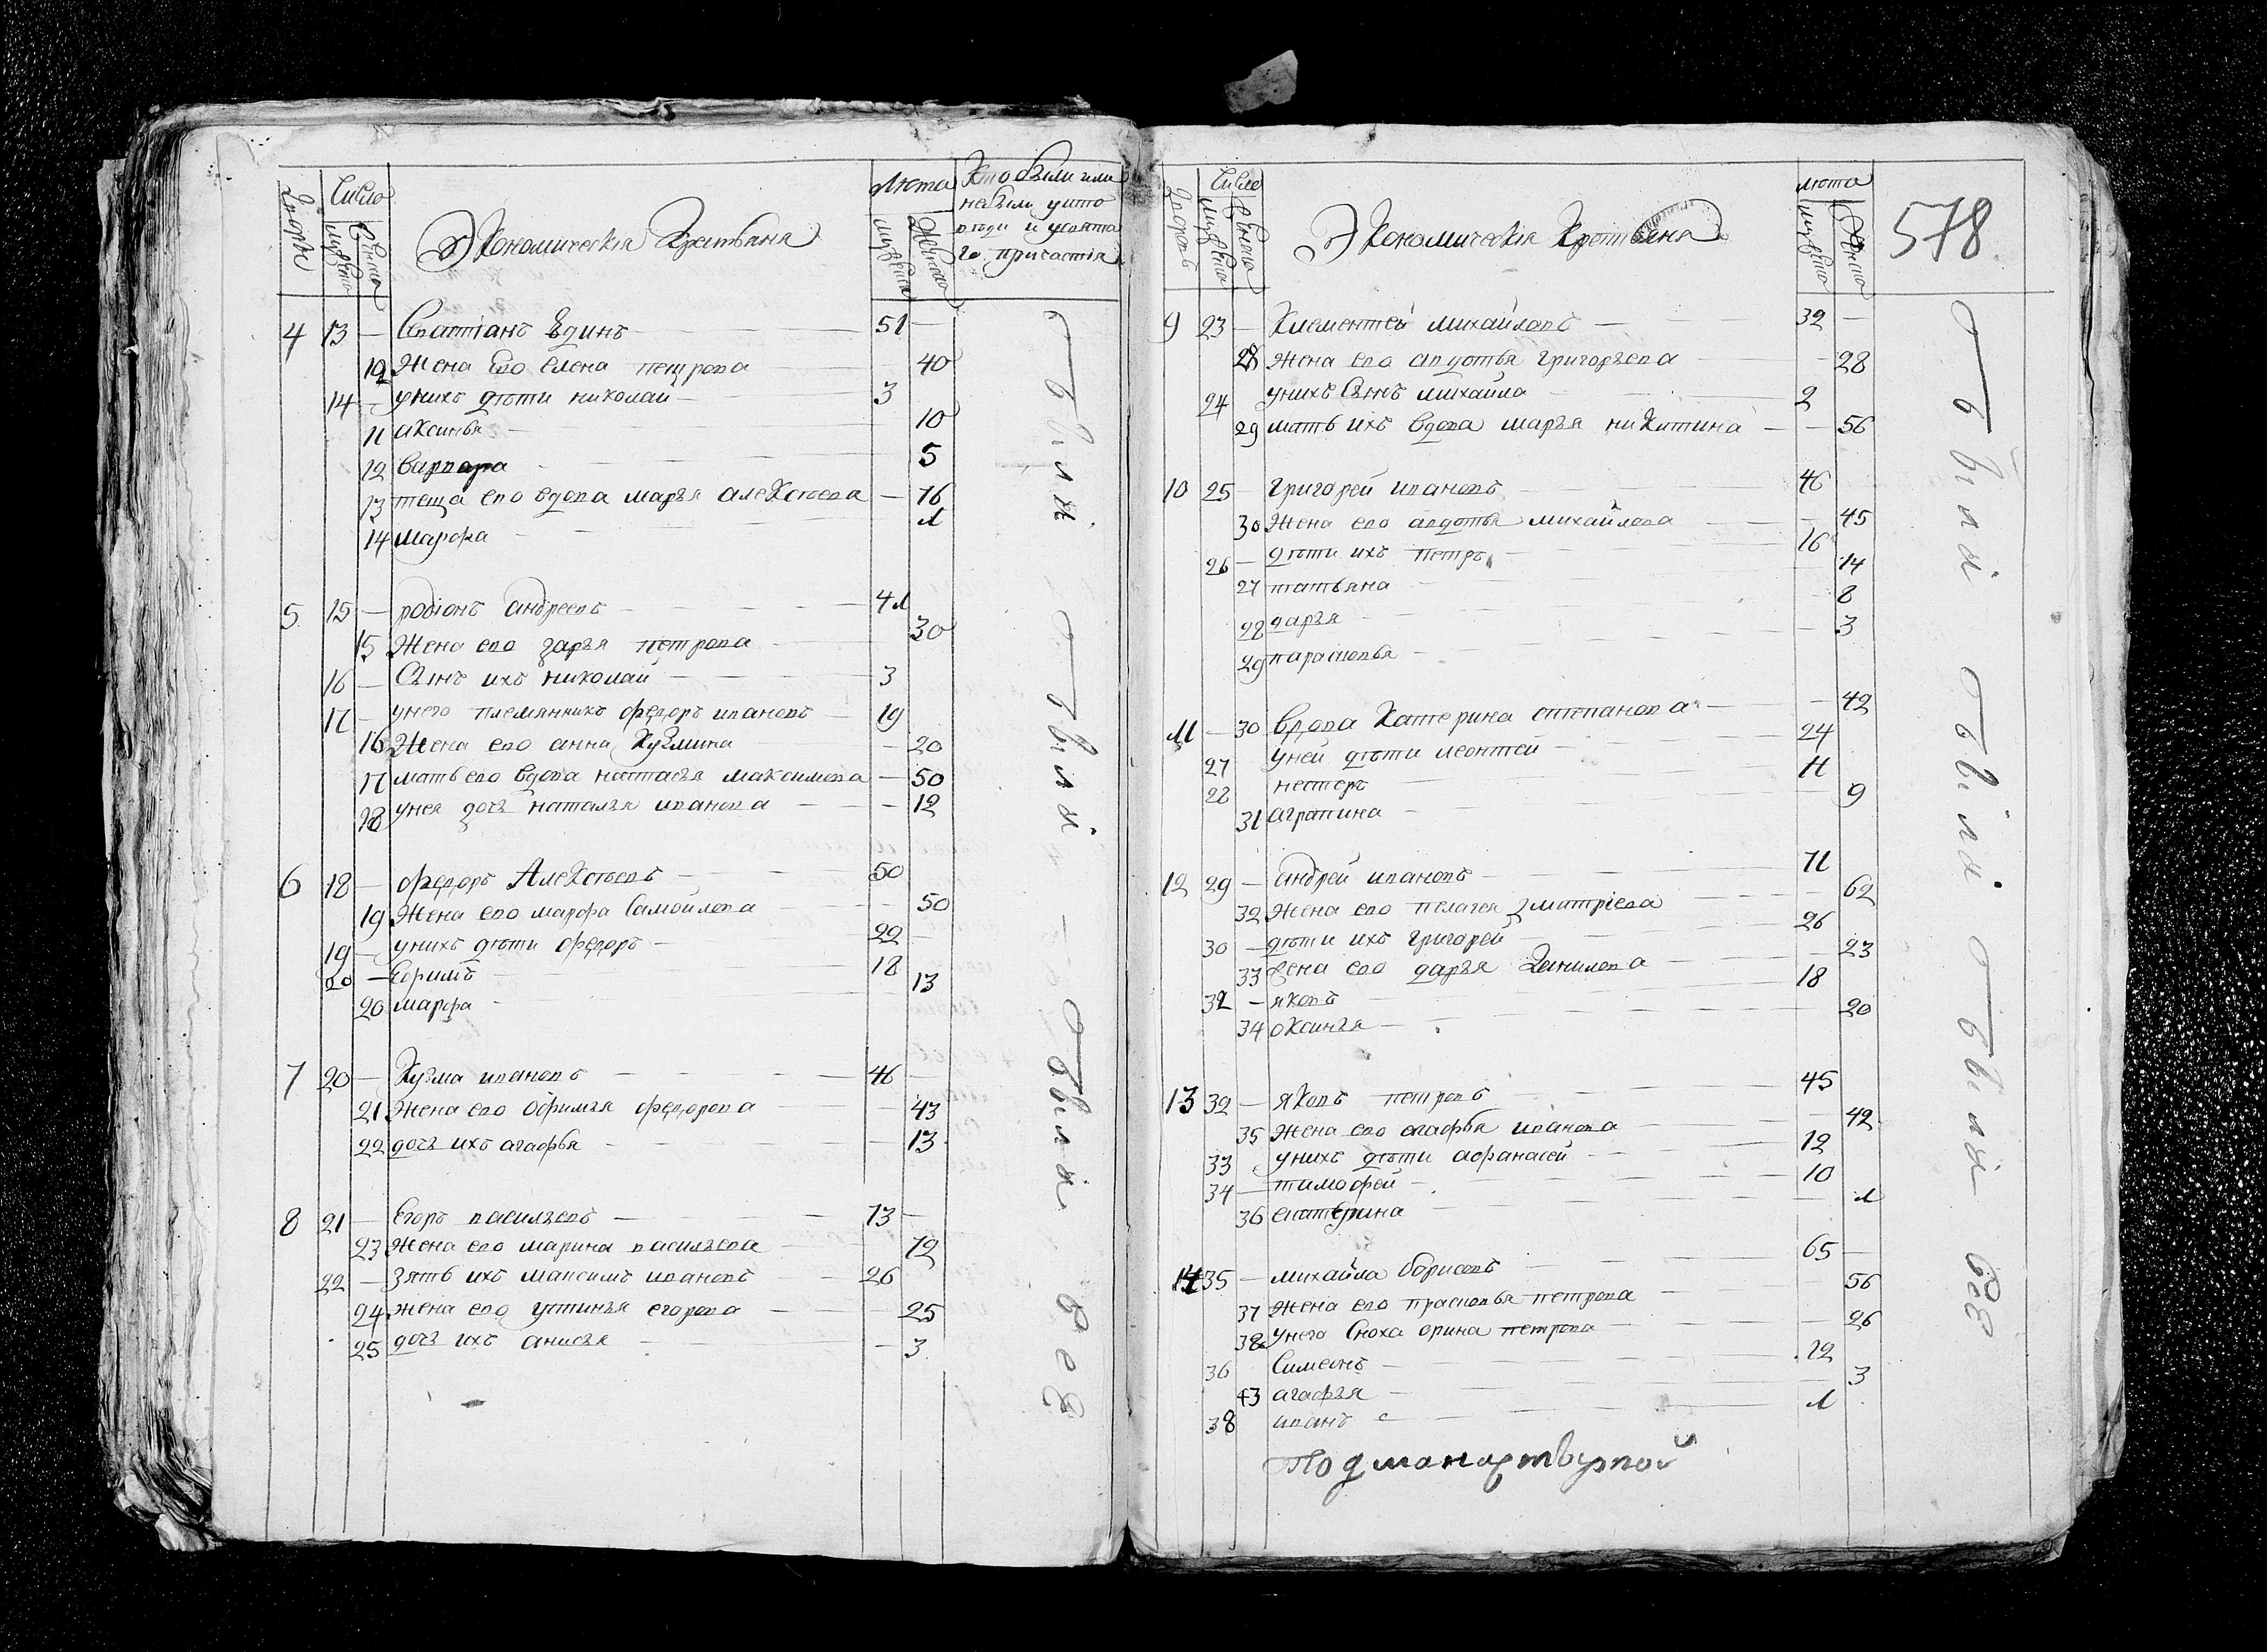 Число
Экономическiя Крестьяня
Лета
Кто были или
небыли уисто
веди и усвята
го причастiя
Дворы
мужска
женска
мужска
женска
4 13 — Савастiанъ Единъ — 51 —
10 жена ево елена петрова 40
14 — унихъ дѣти николай — 3
11 аксинья — 10
12 варвара — 5
13 теща ево вдова марья алексѣева — 76
14 марфа — 11
5 15 — родiонъ андреевъ — 41
15 жена ево дарья петрова 30
16 — Сынъ ихъ николай — 3
17 — унего племянникъ федоръ ивановъ — 19
16 жена ево анна кузмина — 20
17 мать ево вдова настасья максимова — 50
18 унея дочь наталья иванова — 12
6 18 — федоръ Алексѣевъ — 50
19 жена ево марфа самойлова — 50
19 — унихъ дѣти федоръ — 22
20 — ефимъ — 18
20 марфа — 13
7 20 — Кузма ивановъ — 46
21 жена ево офимья федорова — 43
22 дочь ихъ агафья — 13
8 21 — Егоръ васильевъ — 73 —
23 жена ево марина васильева 72
22 — Зять ихъ максимъ ивановъ — 26
24 жена ево устинья егорова — 25
25 дочь ихъ анисья — 3
были были были все
Число
Экономическiя Крестьяня
лета
578
Дворовъ
мужска
женска
мужска
женска
9 23 — Клементей михайловъ — 32 —
28 жена ево авдотья григорьева — 28
24 унихъ Сынъ михайла — 2
29 мать ихъ вдова марья никитина — 56
10 25 — григорей ивановъ — 46
30 жена ево авдотья михайлова — 45
26 — дѣти ихъ петръ — 16
27 татьяна — 14
28 дарья — 8
29 парасковья — 3
11 — 30 вдова катерина степанова — 42
27 уней дѣти леонтей — 24
28 нестеръ — 11
31 аграпина — 9
12 29 — андрей ивановъ — 71
32 жена ево пелагея дмитрiева — 62
30 — дѣти ихъ григорей — 26
33 жена ево дарья данилова — 23
32 — яковъ — 18
34 оксинья — 20
13 32 — яковъ петровъ 45
35 жена ево агафья иванова — 42
33 унихъ дѣти афанасей — 12
34 — тимофей — 10
36 екатерина — 11
14 35 — михайла борисовъ — 65 —
37 жена ево прасковья петрова — 56
38 унего сноха орина петрова — 26
36 Симеонъ — 12
43 агафья — 3
38 иванъ — 11
были были были все